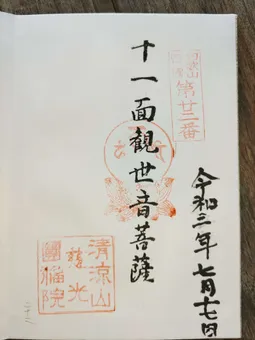 第廿二番
十一面観世音菩薩
令和三年七月十七日
清涼山
慈光
圓福院